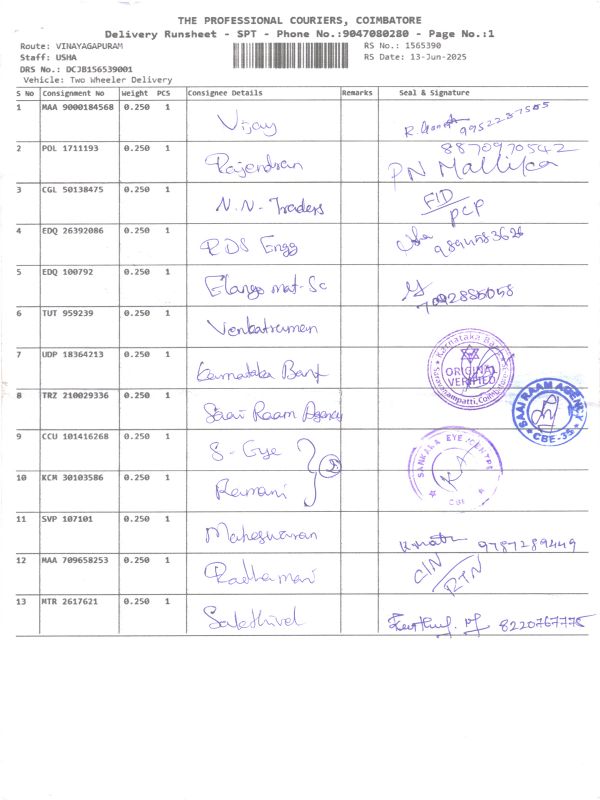 THE PROFESSIONAL COURIERS, COIMBATORE
Delivery Runsheet - SPT - Phone No.:9047080280 - Page No.:1
Route: VINAYAGAPURAM RS No.: 1565390
Staff: USHA RS Date: 13-Jun-2025
DRS No.: DCJB156539001
Vehicle: Two Wheeler Delivery
S No Consignment No Weight PCS Consignee Details Remarks Seal & Signature
1 MAA 9000184568 0.250 1 Vijay 9952237505
2 POL 1711193 0.250 1 Rajendran 8870970542
PN Mallika
3 CGL 50138475 0.250 1 N.N- Traders FID
PCP
4 EDQ 26392086 0.250 1 RDS Engg 9894583626
5 EDQ 100792 0.250 1 Elango mat-Sc 7092885058
6 TUT 959239 0.250 1 Venkatraman
7 UDP 18364213 0.250 1 Karnataka Bank Karnataka Bank
ORIGINAL
VERIFIED
8 TRZ 210029336 0.250 1 Saai Raam Agency SAAI RAAM AGENCY
CBE-35
9 CCU 101416268 0.250 1 S-Eye SANKARA EYE CENTRE
CBE
10 KCM 30103586 0.250 1 Ramani
11 SVP 107101 0.250 1 Maheswaran 9787289449
12 MAA 709658253 0.250 1 Radhamani CIN
RTN
13 MTR 2617621 0.250 1 Sakthivel 8220767775